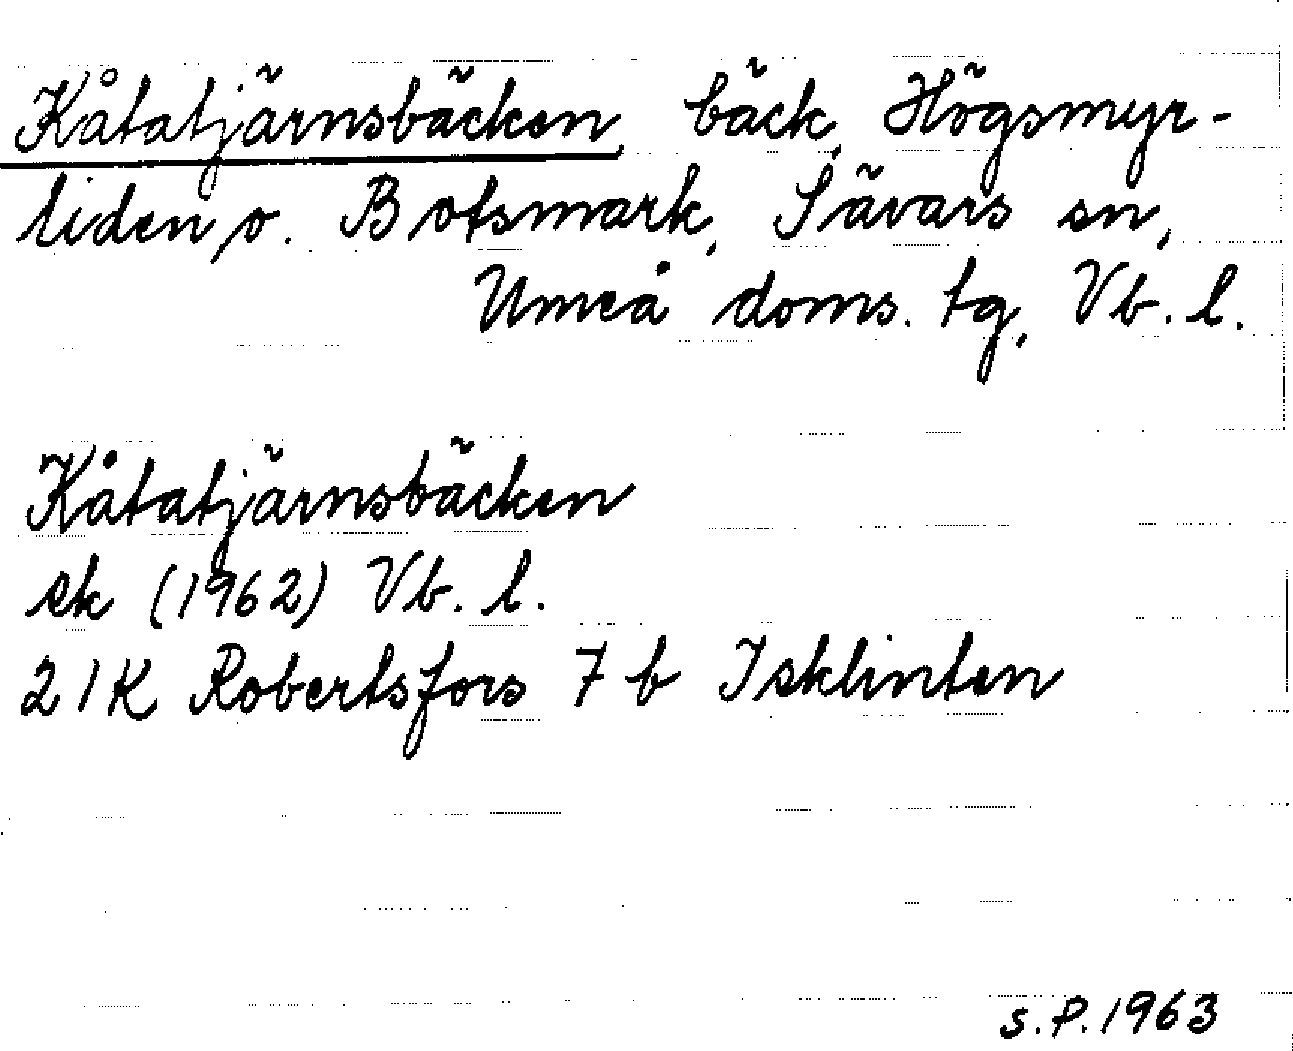 Kåtatjärnsbäcken, bäck, Högsmyr-
liden o. Botsmark, Sävars sn,
Umeå doms. tg, Vb. l.
Kåtatjärnsbäcken
ek (1962) Vb. l.
21K Robertsfors 7 b Isklinten
S.P. 1963